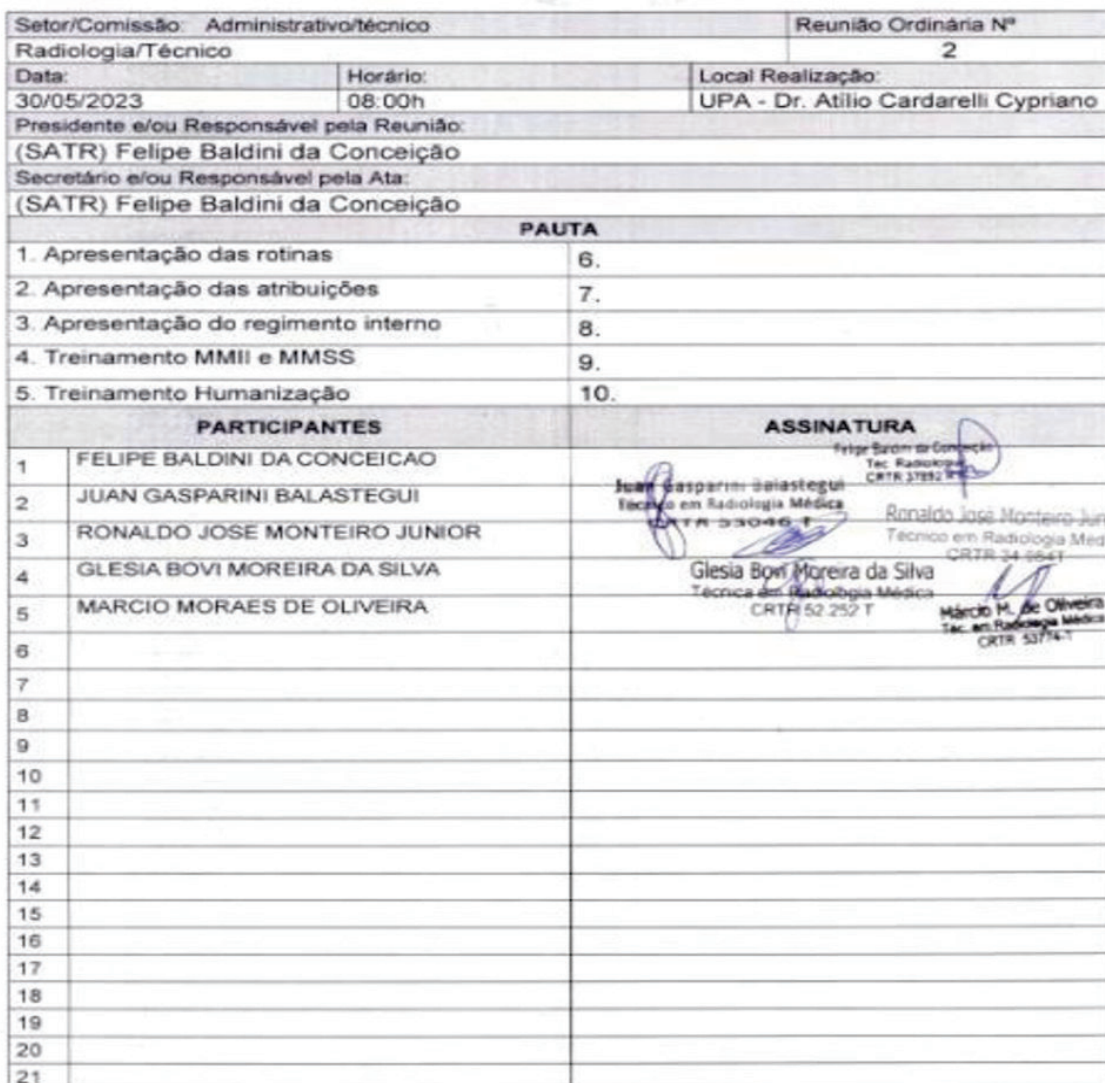 Setor/Comissão: Administrativo/técnico
Reunião Ordinária Nº
Radiologia/Técnico
2
Data:
Horário:
Local Realização:
30/05/2023
08:00h
UPA - Dr. Atílio Cardarelli Cypriano
Presidente e/ou Responsável pela Reunião:
(SATR) Felipe Baldini da Conceição
Secretário e/ou Responsável pela Ata:
(SATR) Felipe Baldini da Conceição
PAUTA
1. Apresentação das rotinas
6.
2. Apresentação das atribuições
7.
3. Apresentação do regimento interno
8.
4. Treinamento MMII e MMSS
9.
5. Treinamento Humanização
10.
PARTICIPANTES
ASSINATURA
1 FELIPE BALDINI DA CONCEICAO
Felipe Baldini da Conceição
Tec. Radiologia
CRTR
2 JUAN GASPARINI BALASTEGUI
Juan Gasparini Balastegui
Técnico em Radiologia Médica
CRTR 53046 T
3 RONALDO JOSE MONTEIRO JUNIOR
Ronaldo José Monteiro Jun
Técnico em Radiologia Méd
CRTR
4 GLESIA BOVI MOREIRA DA SILVA
Glesia Bovi Moreira da Silva
Técnica em Radiologia Médica
CRTR 52.252 T
5 MARCIO MORAES DE OLIVEIRA
Márcio M. de Oliveira
Téc. em Radiologia Médica
CRTR 53774-T
6
7
8
9
10
11
12
13
14
15
16
17
18
19
20
21